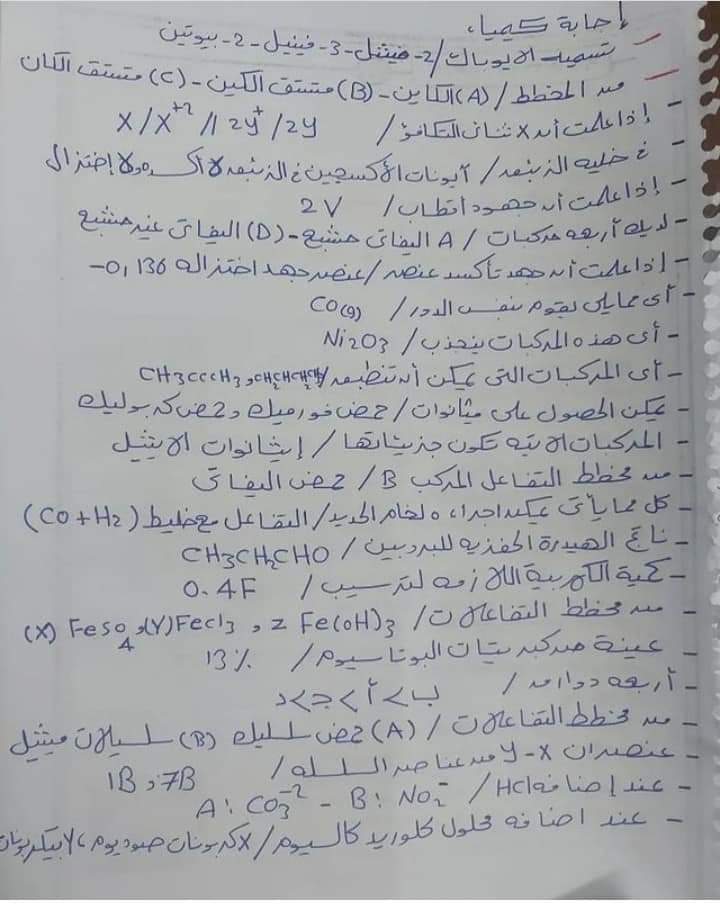 إجابة كيمياء
تسمية الايوباك / 2- ميثيل -3- فينيل -2- بيوتين
من المخطط / (A) الكاين - (B) مشتق الكين - (C) مشتق الكان
إذا علمت أن X ثنائى التكافؤ / X/X+2 // 2y+/2y
فى خلية الزئبق / أيونات الأكسجين فى الزئبق لا أكسدة ولا إختزال
إذا علمت أن جهود اقطاب / 2V
لديك أربعه مركبات / A اليفاتى مشبع - (D) اليفاتى غير مشبع
إذا علمت أن جهد تأكسد عنصر / عنصر جهد اختزاله -0,136
أى مما يلى يقوم بنفس الدور / CO(g)
أى هذه المركبات ينجذب / Ni2O3
أى المركبات التى يمكن أن تنطبق / CH3CCCH3 و CH2CHCHCH2
يمكن الحصول على ميثانوات / حمض فورميك وحمض كربوليك
المركبات الاتيه تكون جزيئاتها / إيثانوات الايثيل
من مخطط التفاعل المركب B / حمض اليفاتى
كل مما يأتى يمكن اجراءه لخام الحديد / التفاعل مع خليط (CO+H2)
ناتج الهيدرة الحفزيه للبروبين / CH3CH2CHO
كمية الكهربية اللازمه لترسيب / 0.4F
من مخطط التفاعلات / (X) FeSO4 و (Y) FeCl3 و Z Fe(OH)3
عينة من كبريتات البوتاسيوم / 13%
أربعه دوارق / ب > أ > ج > د
من مخطط التفاعلات / (A) حمض سلسليك (B) سلسيلات ميثيل
عنصران X-Y من عناصر السلسله / 7B و 1B
عند إضافة HCl / A: CO3-2 - B: NO2-
عند اضافه محلول كلوريد كالسيوم / X كربونات صوديوم